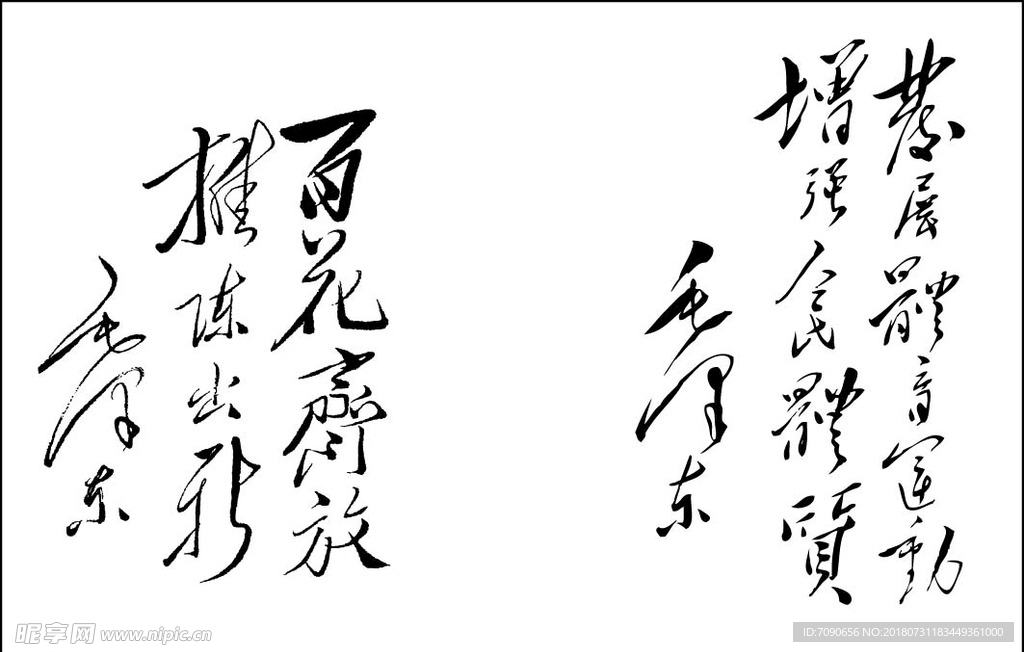 發展體育運動
增强人民體質
毛泽东
百花齊放
推陈出新
毛泽东
昵享网 www.nipic.cn
ID:7090656 NO:20180731183449361000